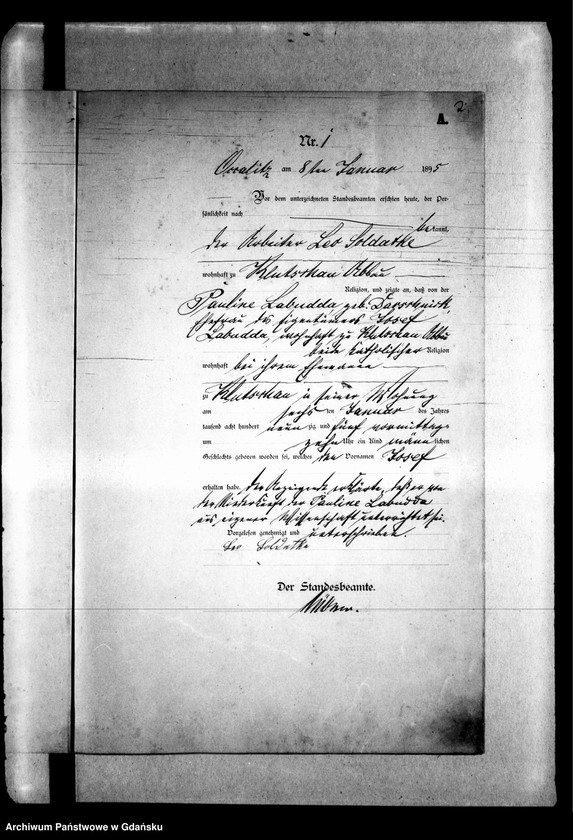 2
A.
Nr. 1
Occalitz am 8ten Januar 1895
Vor dem unterzeichneten Standesbeamten erschien heute, der Per-
sönlichkeit nach
bekannt,
der Arbeiter Leo Soldatke
wohnhaft zu Klutschau Abbau
Religion, und zeigte an, daß von der
Pauline Labudda geb.
Ehefrau des Eigenthümers Josef
Labudda, wohnhaft zu Klutschau Abbau
beide katholischer Religion
wohnhaft bei ihrem Ehemanne
zu Klutschau in seiner Wohnung
am sechsten Januar des Jahres
tausend acht hundert neunzig und fünf vormittags
um zehn Uhr ein Kind männlichen
Geschlechts geboren worden sei, welches den Vornamen Josef
erhalten habe. Der Anzeigende erklärte, daß er von
der Niederkunft der Pauline Labudda
aus eigener Wissenschaft unterrichtet sei.
Vorgelesen genehmigt und unterschrieben.
Leo Soldatke
Der Standesbeamte.
Archiwum Państwowe w Gdańsku